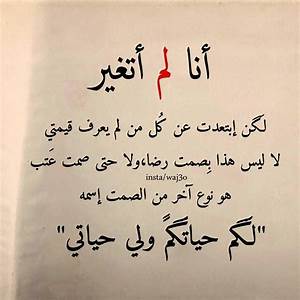 أنا لم أتغير
لكن إبتعدت عن كُل من لم يعرف قيمتي
لا ليس هذا بِصمت رضاء،ولا حتى صمت عَتب
insta/waj3o
هو نوع آخر من الصمت إسمه
"لكم حياتكمً ولي حياتي"